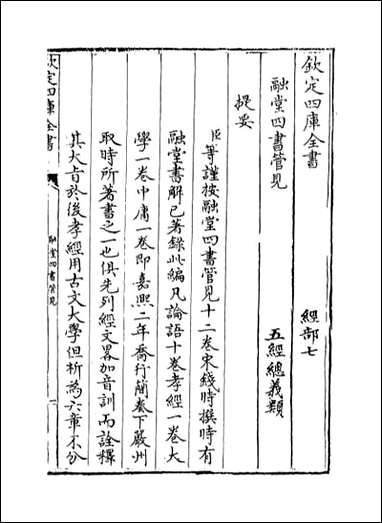 欽定四庫全書　經部七
融堂四書管見　五經總義類
提要
臣等謹按融堂四書管見十二卷宋錢時撰時有
融堂書解已著錄此編凡論語十卷孝經一卷大
學一卷中庸一卷即嘉熙二年喬行簡奏下嚴州
取時所著書之一也俱先列經文畧加音訓而詮釋
其大旨於後孝經用古文大學但析為六章不分
欽定四庫全書
融堂四書管見
一